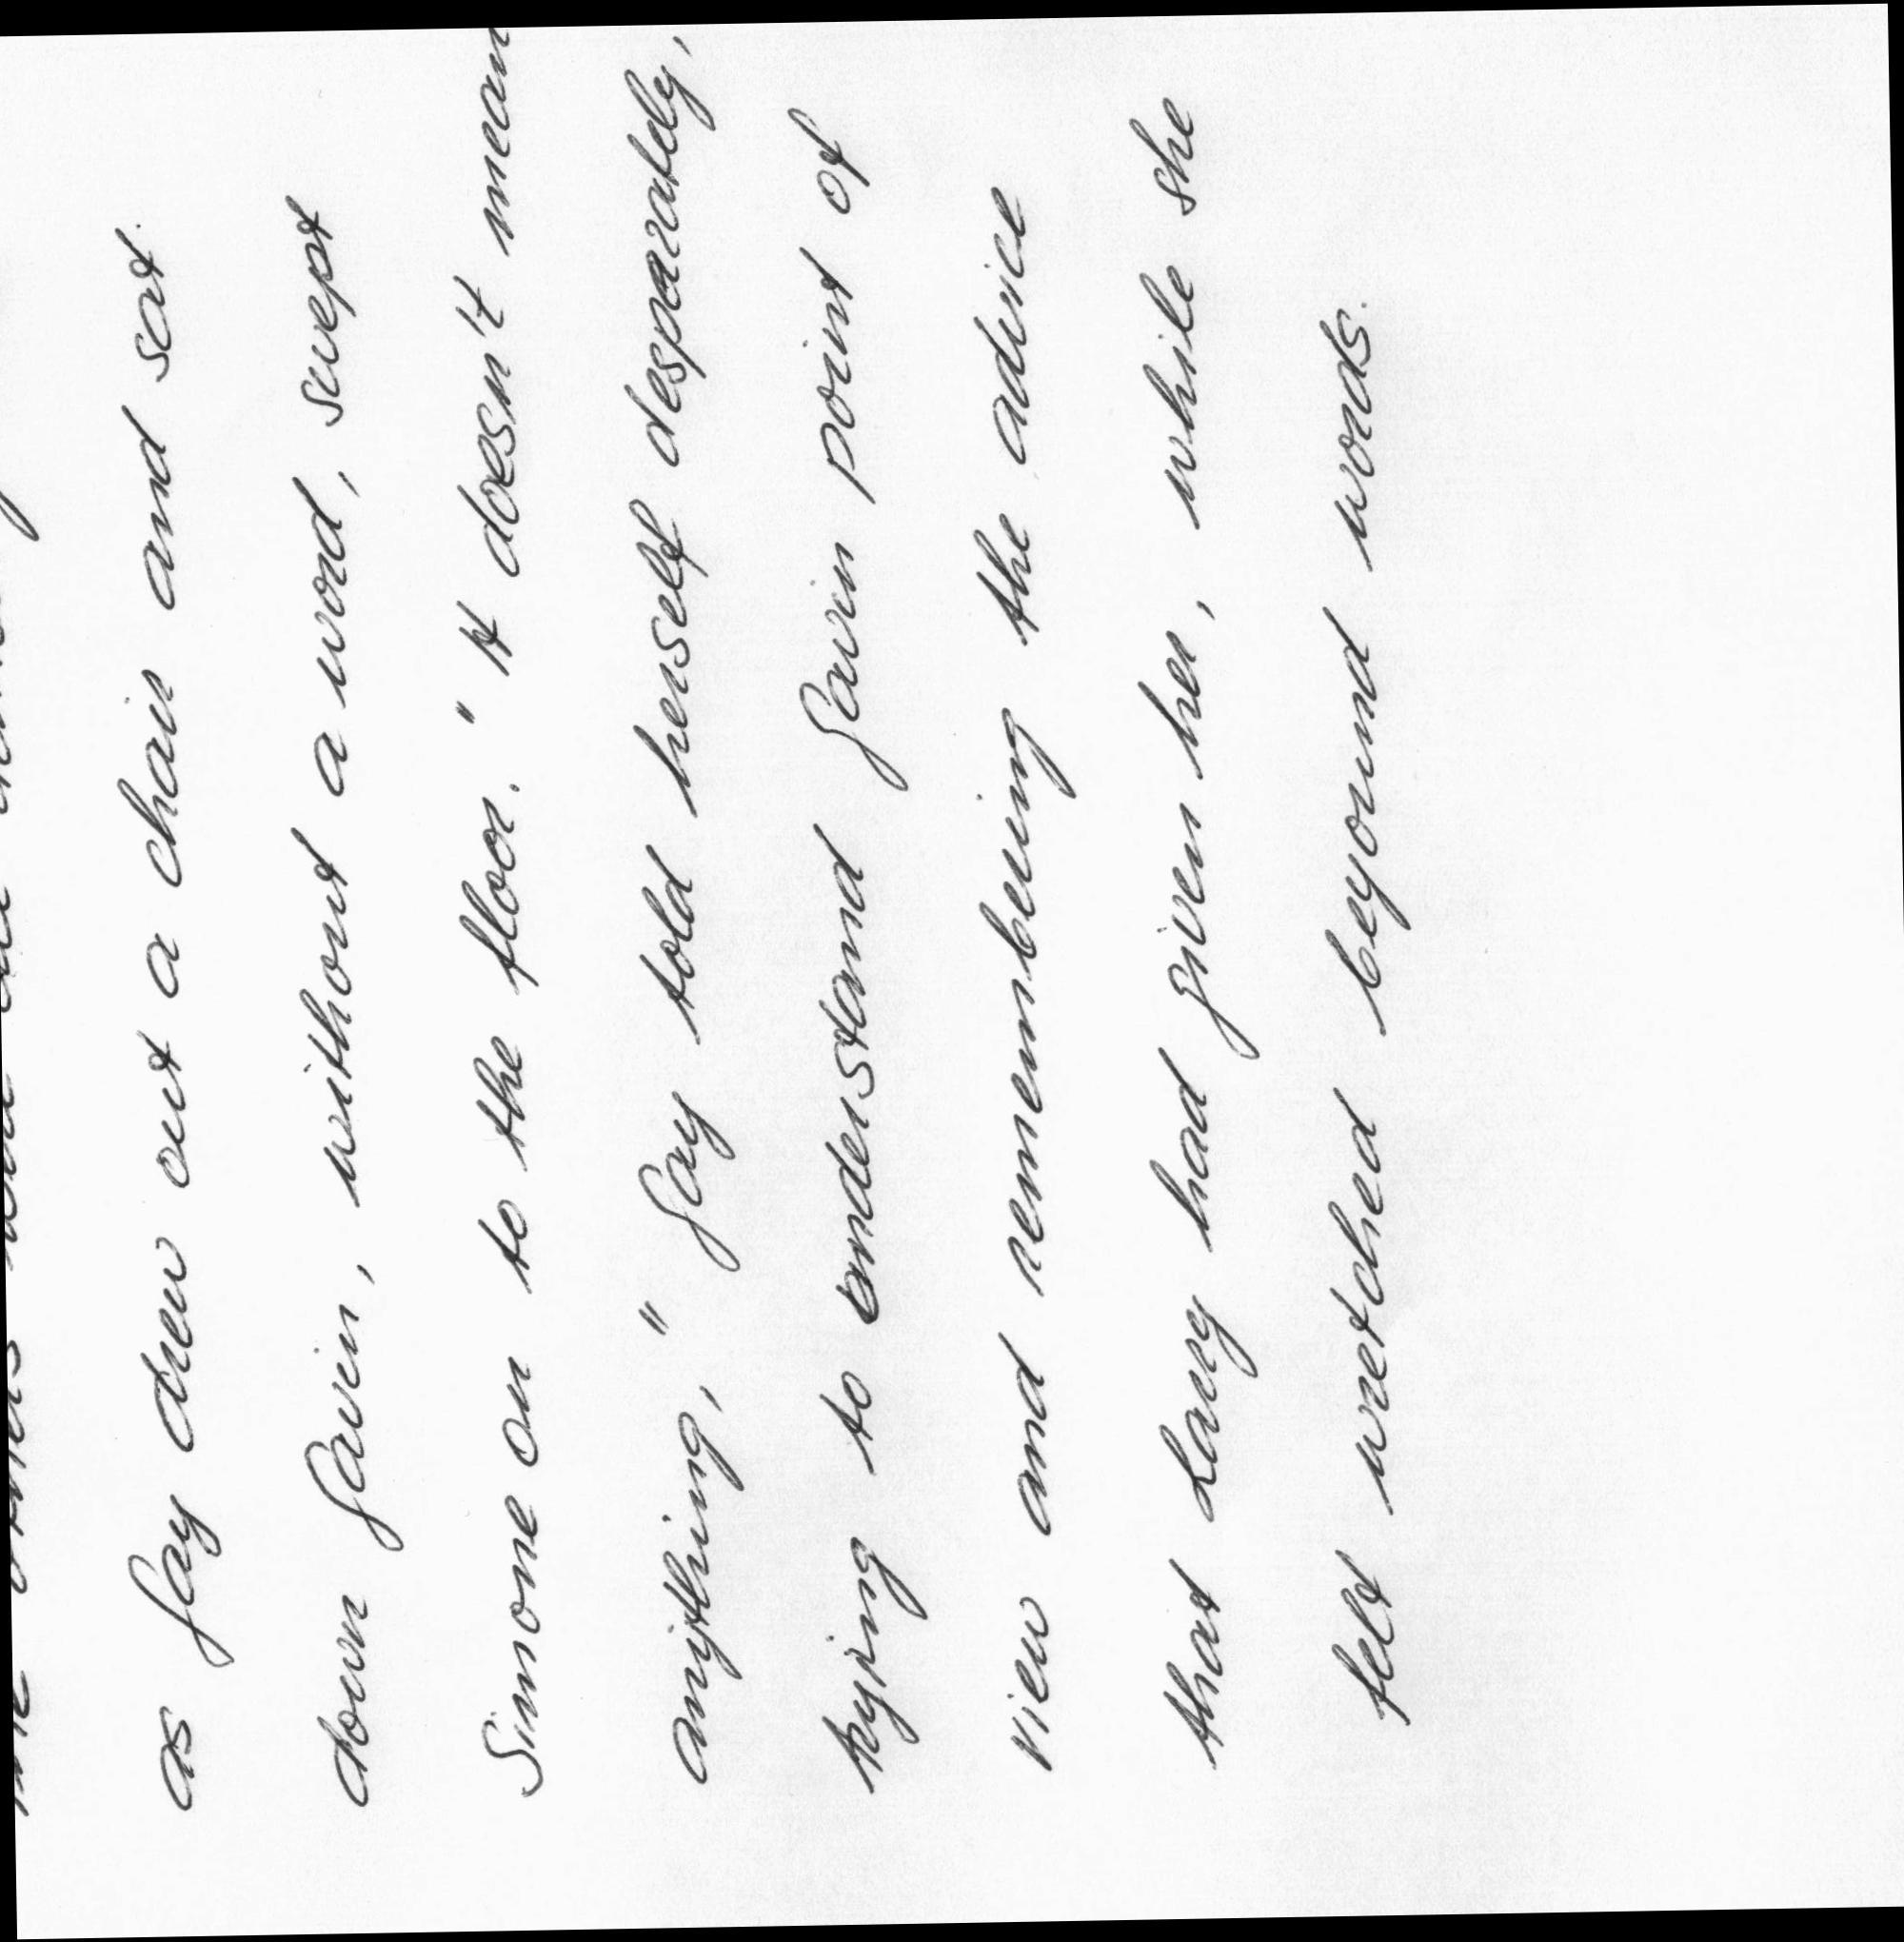 as Gay drew out a chair and sat
down Gavin, without a word, swept
Simone on to the floor. " It doesn't mean
anything, " Gay told herself desparately,
trying to understand Gavin point of
view and remembering the advice
that Larry had given her, while she
felt wretched beyound words.